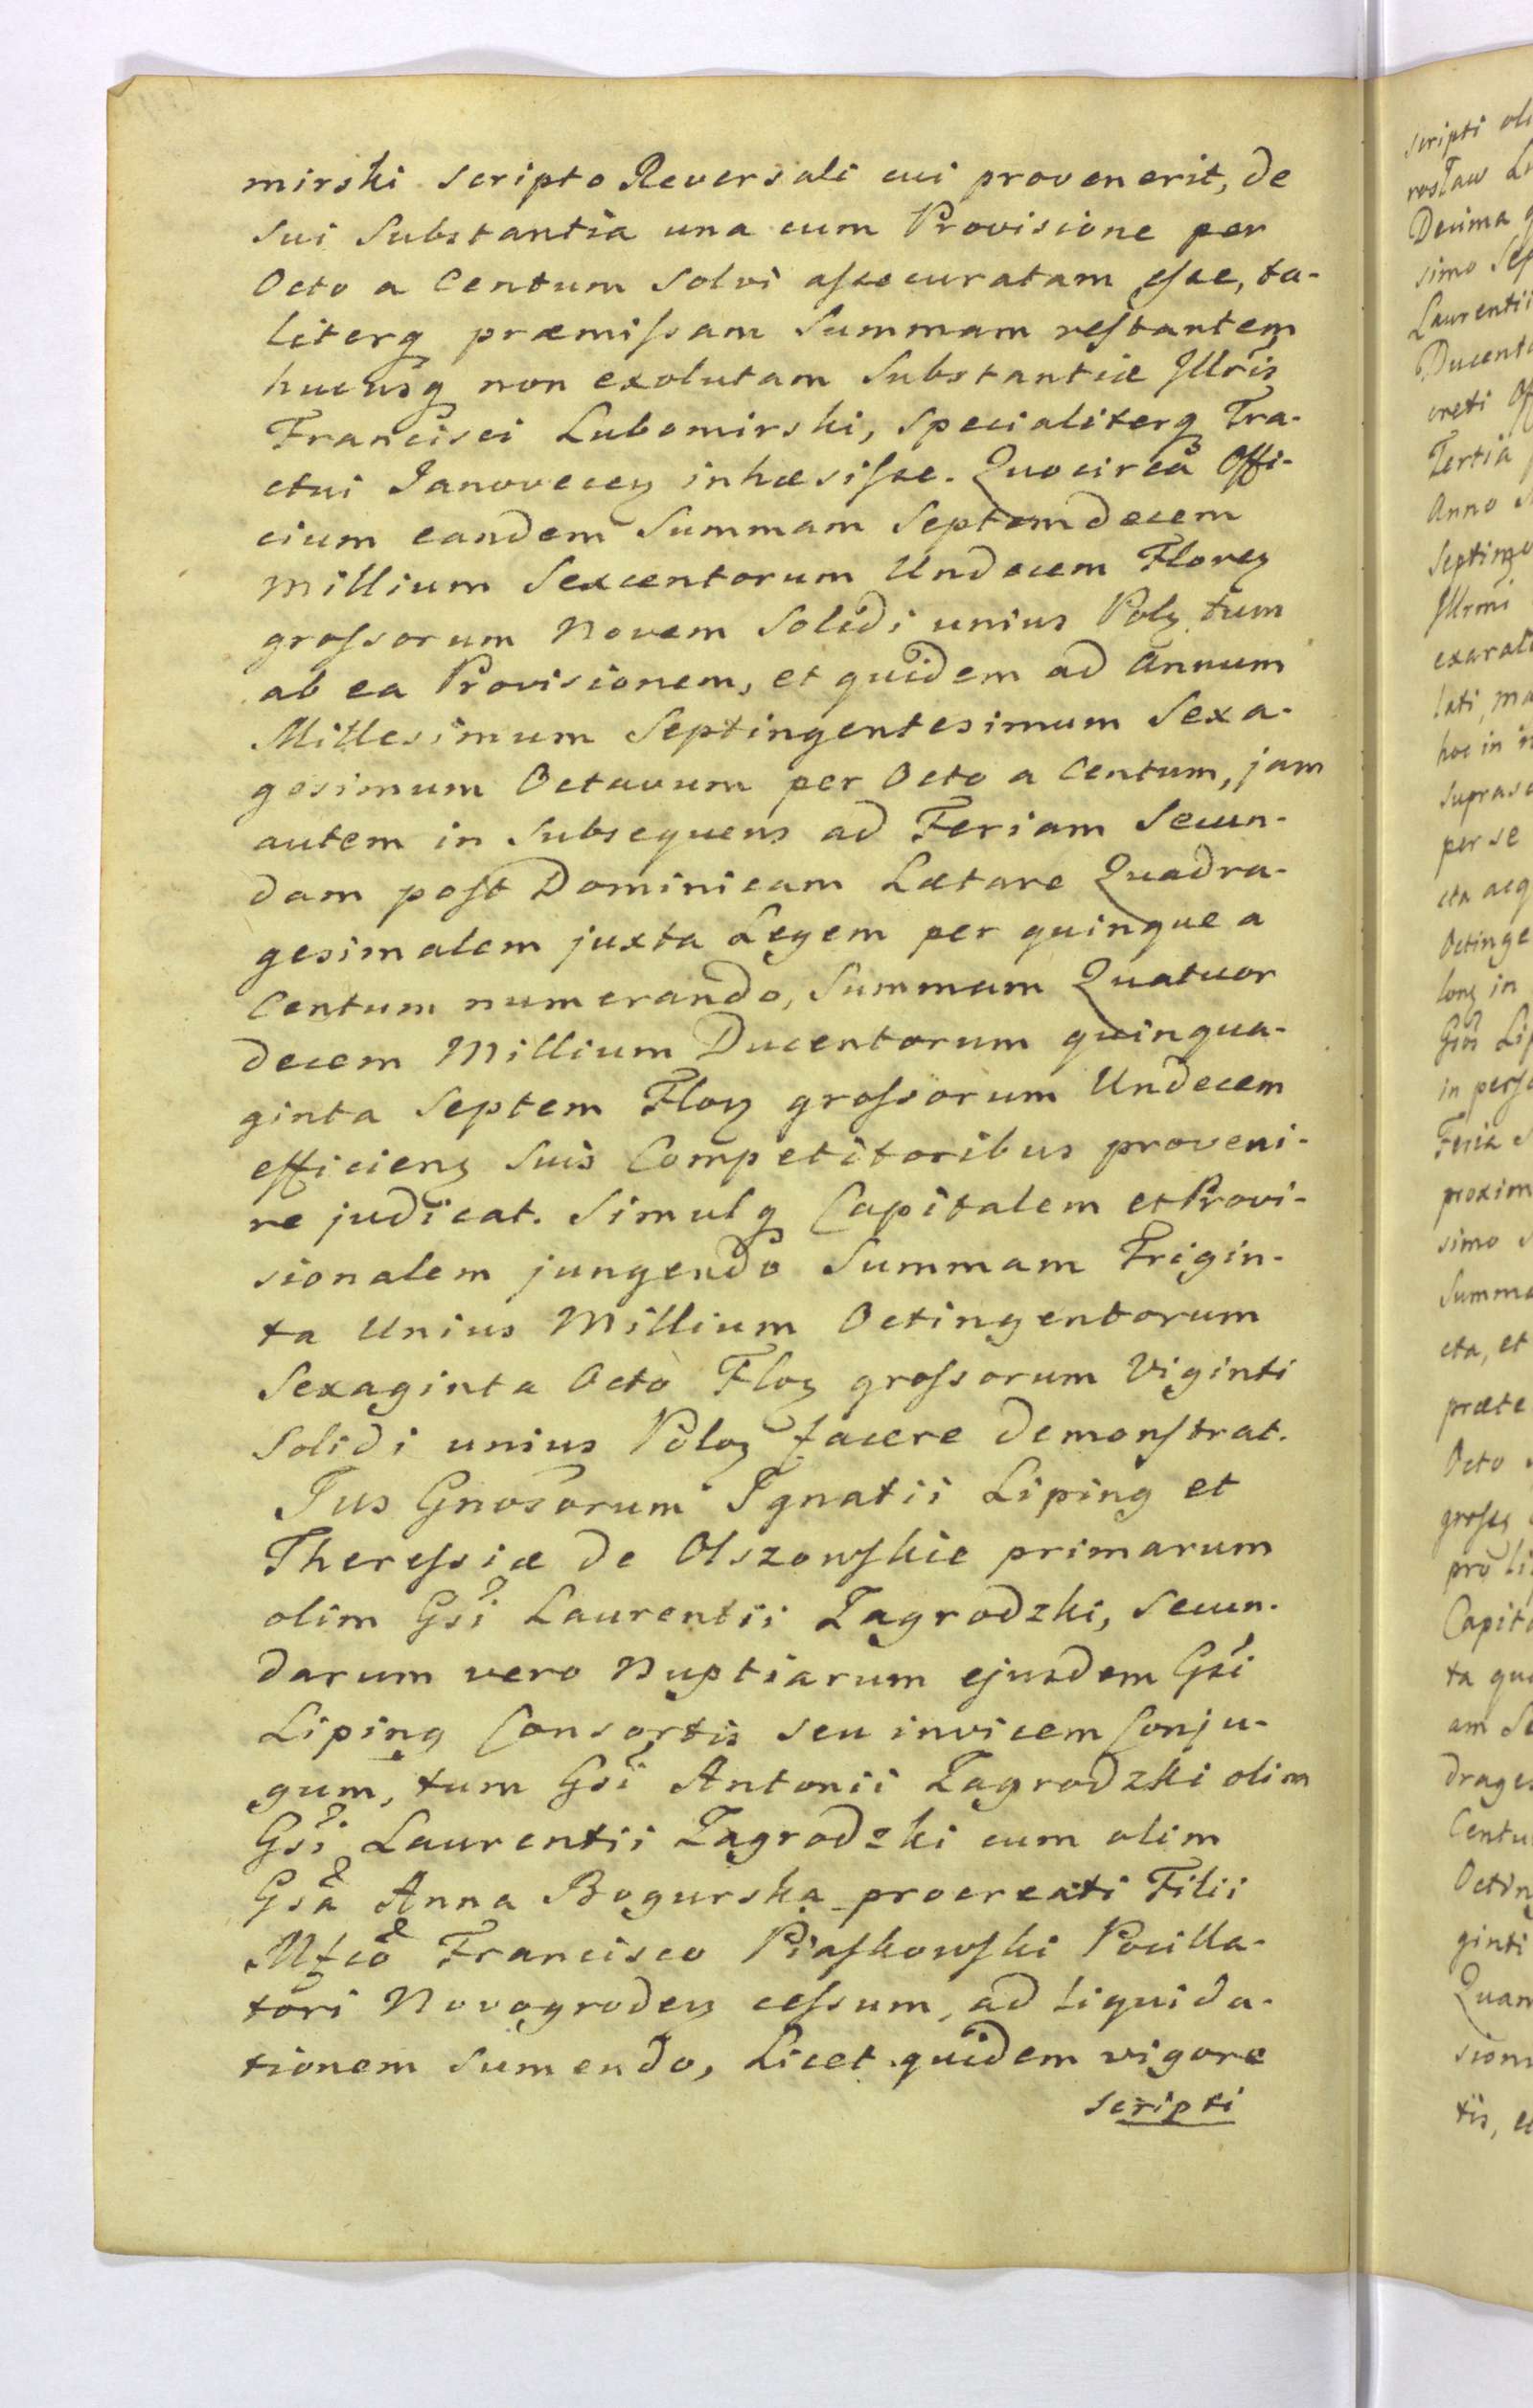 mirski scripto Reversali cui provenerit, de
sui Substantia una cum Provisione per
Octo a Centum Solvi assecuratam esse, ta-
literq præmissam Summam restantem
hucusq non exolutam Substantiæ Illris
Francisci Lubomirski, specialiterq Tra-
ctui Janovecen inhæsisse. Quocirca Offi-
cium eandem Summam Septemdecem
Millium Sexcentorum Undecem Floren
grossorum Novem Solidi unius Polz tum
ab ea Provisionem, et quidem ad Annum
Millesimum Septingentesimum Sexa-
gesimum Octavum per Octo a Centum, jam
autem in Subsequens ad Feriam Secun-
dam post Dominicam Lætare Quadra-
gesimalem juxta Legem per quinque a
Centum numerando, Summam Quatuor
decem Millium Ducentorum quinqua-
ginta Septem Floz grossorum Undecem
efficienz suis Competitoribus proveni-
re judicat. Simulq Capitalem et Provi-
sionalem jungendo Summam Trigin-
ta Unius Millium Octingentorum
Sexaginta Octo Floz grossorum Viginti
Solidi unius Poloz facere demonstrat.
Jus Gnosorum Ignatii Liping et
Theressiæ de Olszowskie primarum
olim Gsi Laurentii Zagrodzki, Secun-
darum vero Nuptiarum ejusdem Gsi
Liping Consortis seu invicem Conju-
gum, tum Gsi Antonii Zagrodzki olim
Gsi Laurentii Zagrodzki cum olim
Gsa Anna Bogurska procreati Filii
Mfco Francisco Piaskowski Pocilla-
tori Novogroden cessum, ad liquida-
tionem Sumendo, Licet quidem vigore
scripti
scripti
rosław
Decima
simo
Laurentii
creti
Tertia
Anno
Illrmi
lati,
hoc in
per se
in
in
simo
cta, et
Octo
ta
ginti